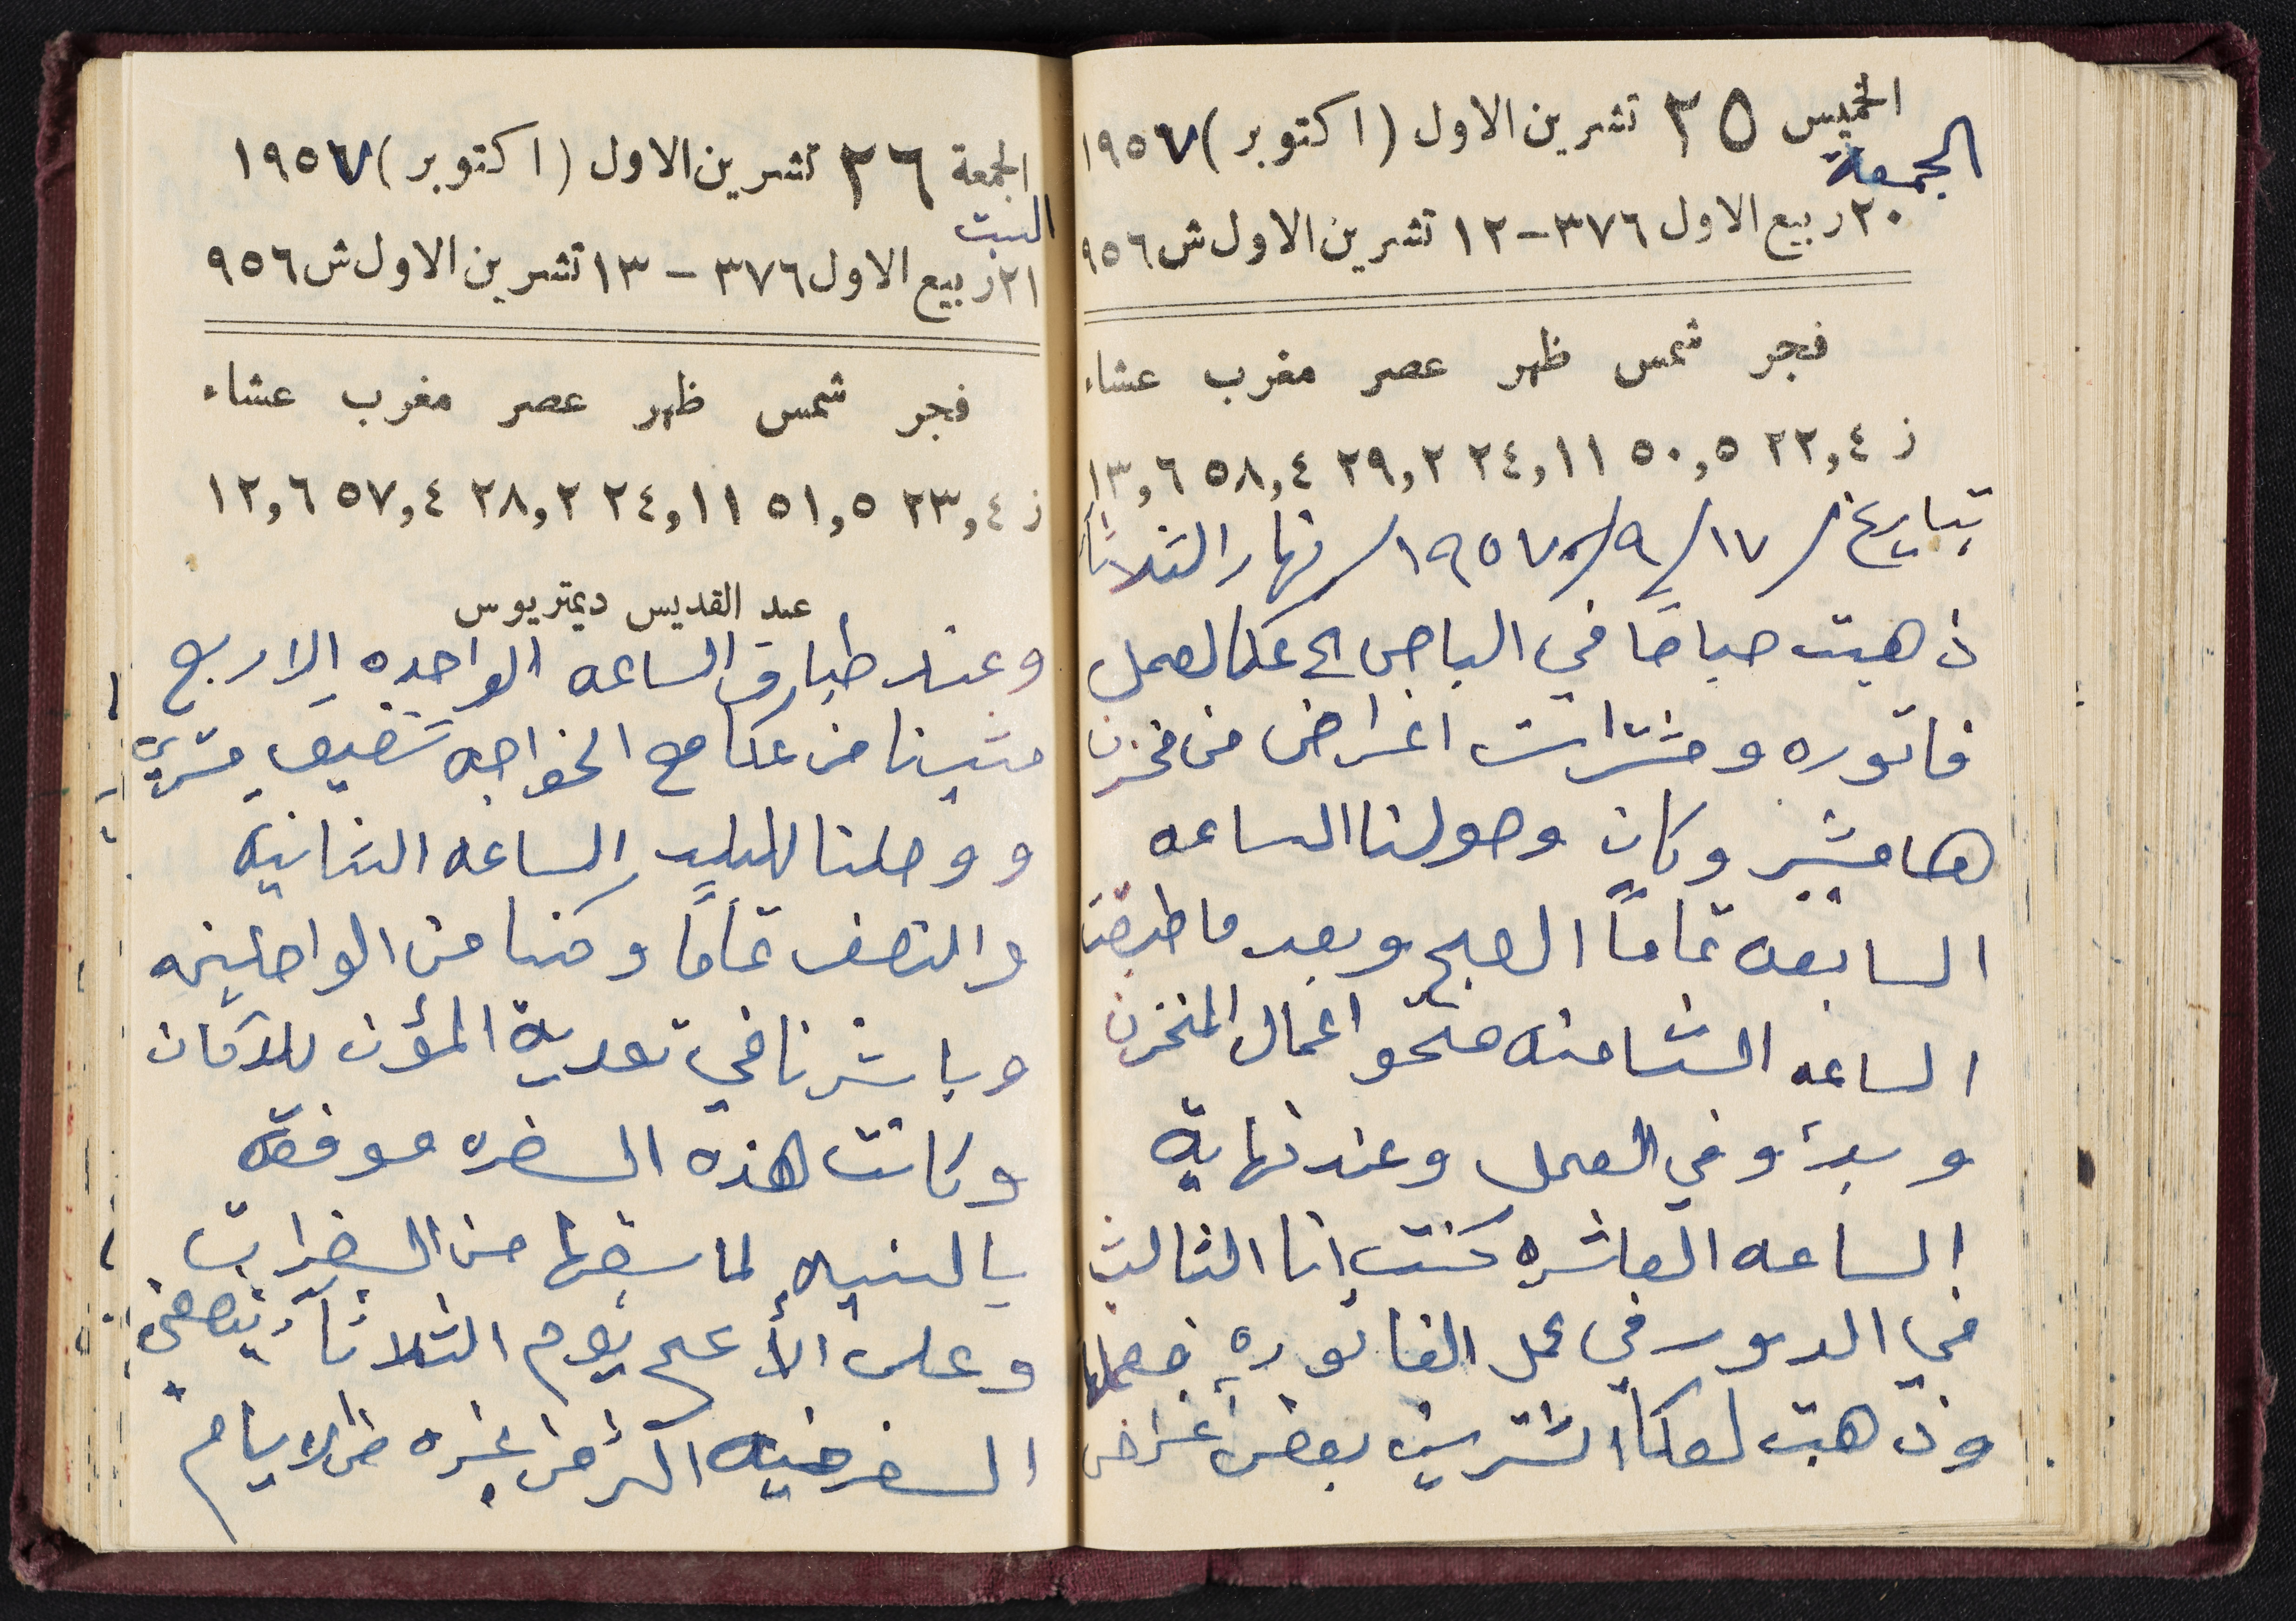 الخميس ٢٥ تشرين الاول (اكتوبر) ١٩٥٧
الجمعة
٢٠ ربيع الاول ٣٧٦ - ١٢ تشرين الاول ش ٩٥٦
فجر شمس ظهر عصر مغرب عشاء
ز ٢٢,٤ ٥٠,٥ ٢٤,١١ ٢٩,٢ ٥٨,٤ ١٣,٦
بتاريخ / ١٧/٩/١٩٥٧ / نهار الثلاثا
ذهبت صباحًا في الباص الى عكا لعمل
فاتوره ومشترات اغراض من مخزن
هامشبير وكان وصولنا الساعه
السابعه تمامًا الصبح وبعد ما طبقت
الساعه الثامنه فتحو اعمال المخزن
وبدؤ في العمل وعند نهاية
الساعه العاشره كنت انا الثالث
في الدور في عمل الفاتوره فعملها
وذهبت لعكا اشتريت بعض اغراض
الجمعة ٢٦ تشرين الاول (اكتوبر) ١٩٥٧
السبت
٢١ ربيع الاول ٣٧٦ - ١٣ تشرين الاول ش ٩٥٦
فجر شمس ظهر عصر مغرب عشاء
ز ٢٣,٤ ٥١,٥ ٢٤,١١ ٢٨,٢ ٥٧,٤ ١٢,٦
عيد القديس ديمتريوس
وعند طباق الساعه الواحده الا ربع
مشينا من عكا مع الخواجه شفيق
ووصلنا للبلد الساعه الثانيه
والنصف تمامًا وكنا من الواصلين
وباشرنا في تعدية المؤن للدكان
وكانت هذه السفره موفقه
بالنسبه لما سبقها من السفرات
وعلى الأصح يوم الثلاثاء
السفر فيه اكثر من غيره من الايام